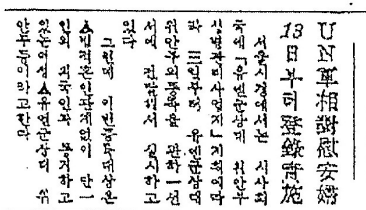 UN軍相對慰安婦
13日부터登錄實施
서울시경에서는 시사회
국에「유엔군상대 위안부
계획에따
라 十三일부터 유엔군상대
위안부의등록을 관하一선
서에 전달해서 실시하고
있다
그런데 이번등록대상은
▲법적혼인관계없이 단一
인의 외국인과 동거하고
있는여성▲유엔군상대 위
안부등이라고한다